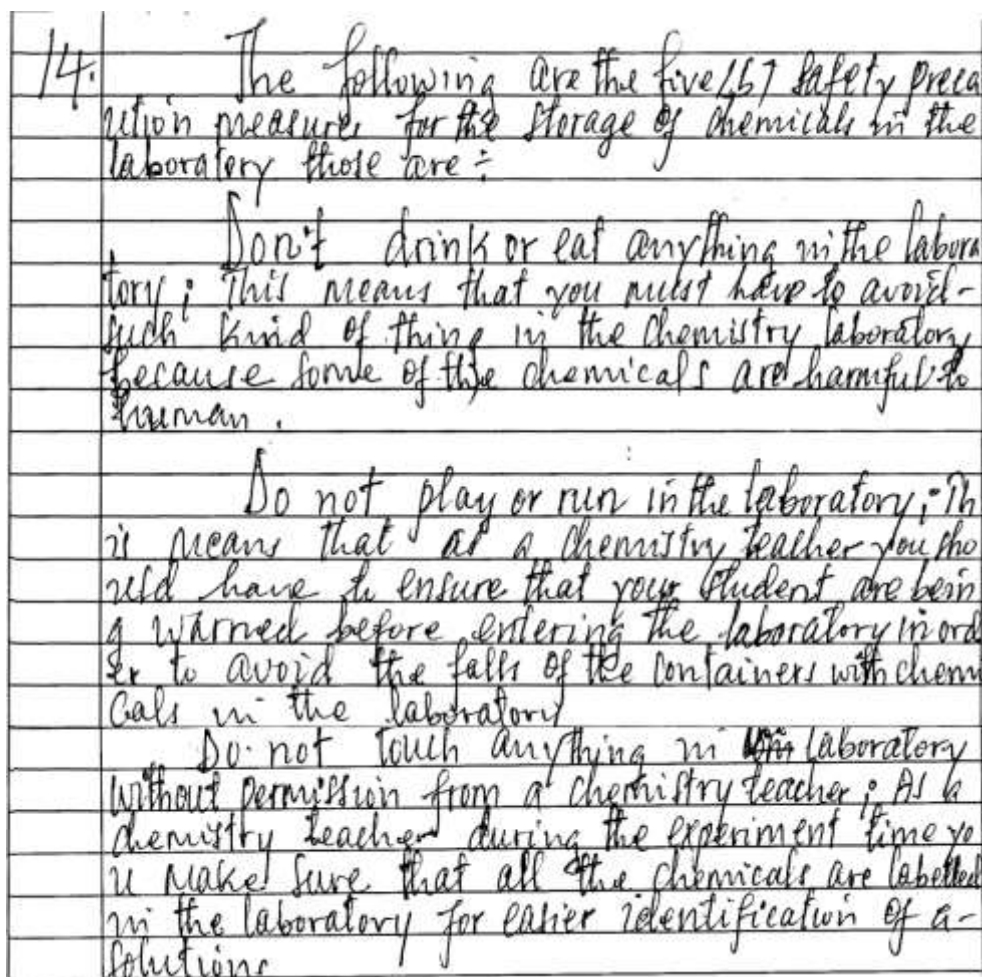 14. The following are the five (5) safety preca
ution measures for the storage of chemicals in the
laboratory those are:-
Don't drink or eat anything in the labora
tory; This means that you must have to avoid-
such kind of thing in the chemistry laboratory
because some of the chemicals are harmful to
human.
Do not play or run in the laboratory; Th
is means that as a chemistry teacher you sho
uld have to ensure that your student are bein
g warned before entering the laboratory in ord
er to avoid the falls of the containers with chemi
cals in the laboratory
Do not touch anything in laboratory
without permission from a chemistry teacher; As a
chemistry teacher during the experiment time yo
u make sure that all the chemicals are labelled
in the laboratory for easier identification of a-
solutions